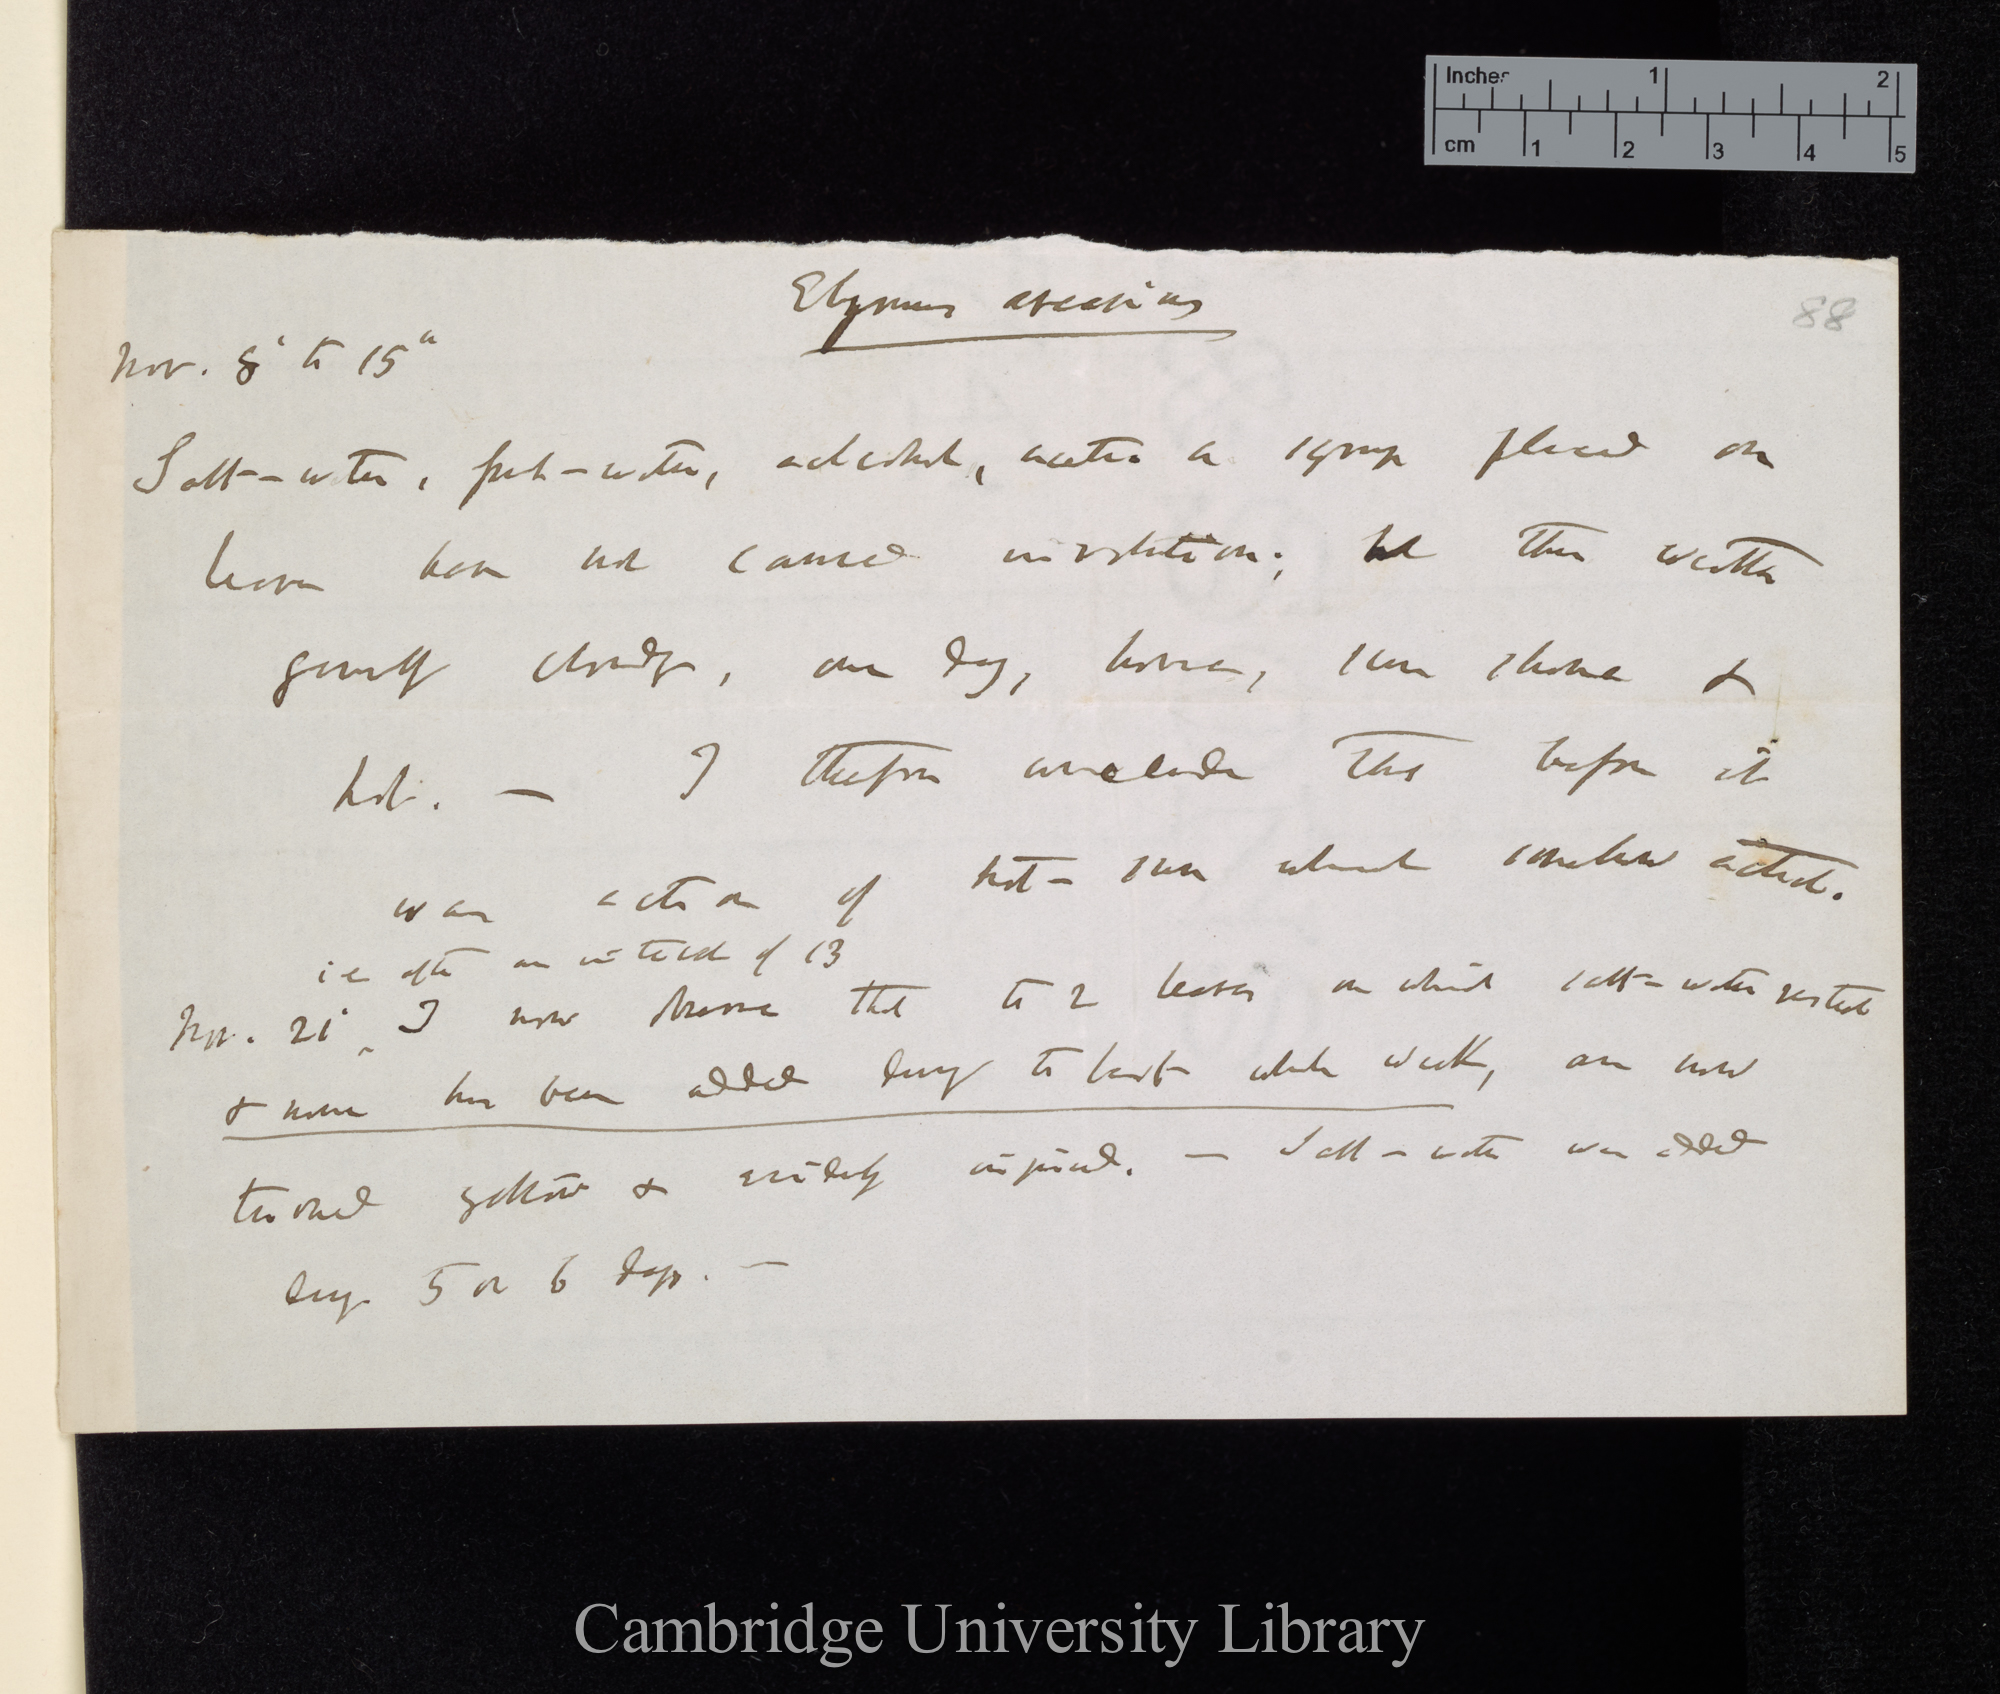 Inches 1 2
cm 1 2 3 4 5
Elymus arenarius
88
Nov. 8 to 15
Salt-water, fresh-water, alcohol, syrup placed on
leaves have not caused involution; but then weather
generally cloudy, one day, however, sun shone &
hot. — I therefore conclude that before it
was action of hot-sun which somehow acted.
i.e. after an interval of 13
Nov. 21 I now observe that the 2 leaves on which salt-water rested
& none has been added during the last whole week, are now
turned yellow & evidently injured. — Salt-water was added
during 5 or 6 days. —
Cambridge University Library